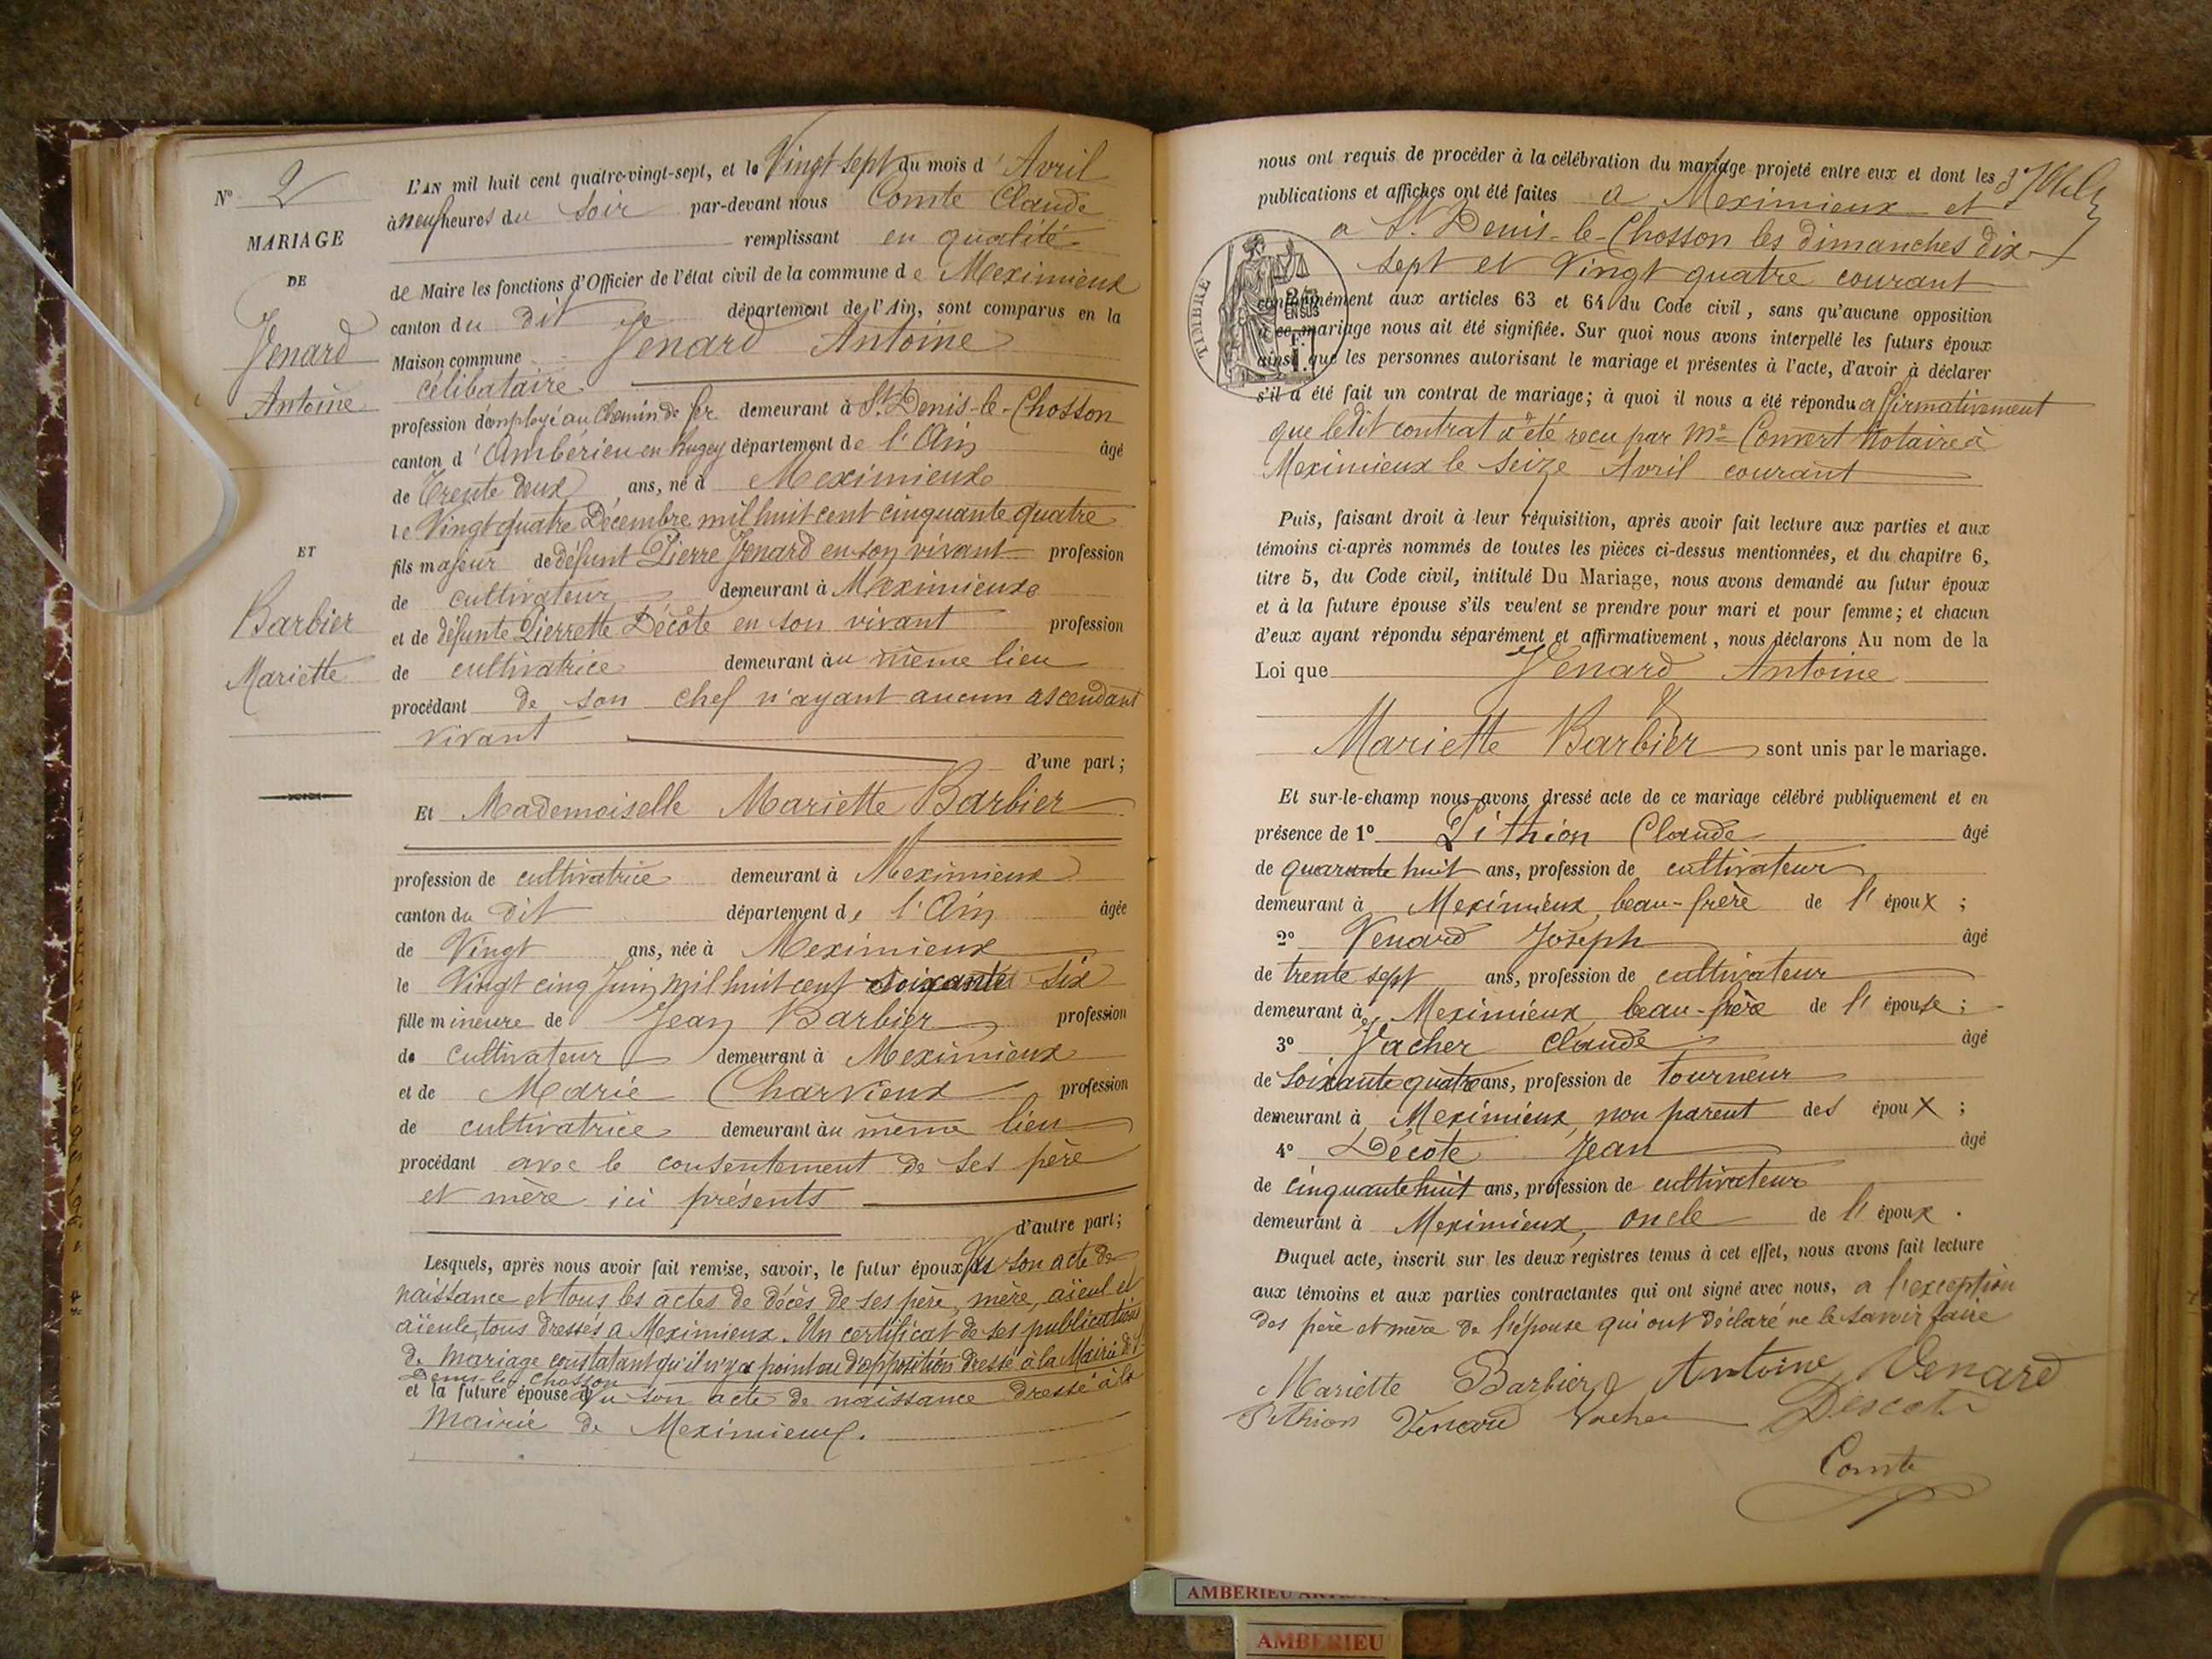 N° 2
MARIAGE
DE
Venard
Antoine
ET
Barbier
Mariette
L'AN mil huit cent quatre-vingt-sept, et le Vingt sept du mois d'Avril
à neuf heures du Soir par-devant nous Comte Claude
remplissant en qualité
de Maire les fonctions d'Officier de l'état civil de la commune de Meximieux
canton du dit département de l'Ain, sont comparus en la
Maison commune Venard Antoine
célibataire
profession d'employé au Chemin de fer demeurant à St Denis-le-Chosson
canton d'Ambérieu en bugey département de l'Ain âgé
de Trente deux ans, né à Meximieux
le Vingt quatre Décembre mil huit cent cinquante quatre
fils majeur de défunt Pierre Venard en son vivant profession
de cultivateur demeurant à Meximieux
et de défunte Pierrette Décote en son vivant profession
de cultivatrice demeurant au même lieu
procédant de son chef n'ayant aucun ascendant
vivant
d'une part;
Et Mademoiselle Mariette Barbier
profession de cultivatrice demeurant à Meximieux
canton du dit département de l'Ain âgée
de Vingt ans, née à Meximieux
le Vingt cinq Juin mil huit cent soixante six
fille mineure de Jean Barbier profession
de cultivateur demeurant à Meximieux
et de Marie Charvieux profession
de cultivatrice demeurant au même lieu
procédant avec le consentement de ses père
et mère ici présents
d'autre part;
Lesquels, après nous avoir fait remise, savoir, le futur époux son acte de
naissance et tous les actes de décès de ses père, mère, aïeul et
aïeule, tous dressés a Meximieux. Un certificat de ses publications
de Mariage constatant qu'il n'y a point eu d'opposition dressé à la Mairie de St
Denis-le-Chosson
et la future épouse son acte de naissance dressé à la
Mairie de Meximieux.
nous ont requis de procéder à la célébration du mariage projeté entre eux et dont les
publications et affiches ont été faites a Meximieux et
a St Denis-le-Chosson les dimanches dix
sept et Vingt quatre courant
TIMBRE
conformément aux articles 63 et 64 du Code civil, sans qu'aucune opposition
à ce mariage nous ait été signifiée. Sur quoi nous avons interpellé les futurs époux
ainsi que les personnes autorisant le mariage et présentes à l'acte, d'avoir à déclarer
s'il a été fait un contrat de mariage; à quoi il nous a été répondu affirmativement
que ledit contrat a été reçu par Me Convert Notaire à
Meximieux le Seize Avril courant
Puis, faisant droit à leur réquisition, après avoir fait lecture aux parties et aux
témoins ci-après nommés de toutes les pièces ci-dessus mentionnées, et du chapitre 6,
titre 5, du Code civil, intitulé Du Mariage, nous avons demandé au futur époux
et à la future épouse s'ils veulent se prendre pour mari et pour femme; et chacun
d'eux ayant répondu séparément et affirmativement, nous déclarons Au nom de la
Loi que Venard Antoine
&
Mariette Barbier sont unis par le mariage.
Et sur-le-champ nous avons dressé acte de ce mariage célébré publiquement et en
présence de 1° Pithion Claude âgé
de quarante huit ans, profession de cultivateur
demeurant à Meximieux, beau-frère de l'époux;
2° Venard Joseph âgé
de trente sept ans, profession de cultivateur
demeurant à Meximieux beau-frère de l'épouse;
3° Vacher Claude âgé
de Soixante quatre ans, profession de tourneur
demeurant à Meximieux, non parent des époux;
4° Décote Jean âgé
de cinquante huit ans, profession de cultivateur
demeurant à Meximieux, oncle de l'époux.
Duquel acte, inscrit sur les deux registres tenus à cet effet, nous avons fait lecture
aux témoins et aux parties contractantes qui ont signé avec nous, a l'exception
des père et mère de l'épouse qui ont déclaré ne le savoir faire
Mariette Barbier Antoine Venard
Pithion Venard Vacher Descote
Comte
AMBERIEU
AMBERIEU